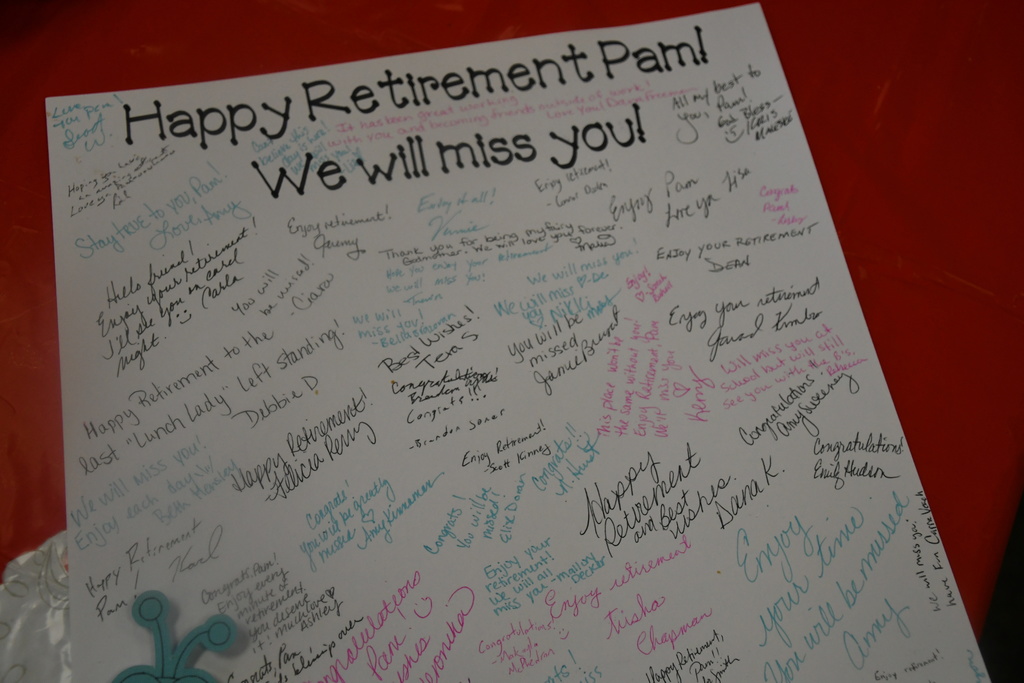 Happy Retirement Pam!
We will miss you!
Love
you Pam!
It has been great working
with you and becoming friends outside of work!
Love you!
All my best to
you, Pam!
God Bless
Stay true to you, Pam!
Love, Amy
Enjoy retirement!
Jeremy
Enjoy it all!
Enjoy retirement!
Enjoy Pam
Love ya Lisa
Congrats
Pam!
Thank you for being my fairy
Godmother. We will love you forever.
Hope you enjoy your retirement
we will miss you!
Hello friend!
Enjoy your retirement!
I'll see you on card
night.
Carla
You will
be missed!
We will miss you!
Enjoy!
ENJOY YOUR RETIREMENT
DEAN
We will
miss you!
We will miss
you
Nikki
Best Wishes!
Texas
You will be
missed
Enjoy your retirement
Happy Retirement to the
last "Lunch Lady" left standing!
Debbie D
Congratulations
Congrats!!!
-Brandon Jones
This place won't be
the same without you!
Enjoy Retirement, Pam
We'll miss you
Kerry
Will miss you at
School but will still
see you with the B's.
Rebecca
Happy Retirement!
Felicia Perry
Congratulations
Amy Sweeney
Congratulations!
Emily Hudson
We will miss you!
Enjoy each day!
Beth
Enjoy Retirement!
-Scott Kinney
Congrats!!
Happy
Retirement
and Best
Wishes.
Dana K.
Congrats!
You will be greatly
missed
Amy
Congrats!
You will be
missed!
Happy Retirement
Pam!
Karl
Congrats, Pam!
Enjoy every
minute of
retirement,
you deserve
it! Much love
Ashley
Enjoy your
retirement!
We will all
miss you
-Mallory
Becker
Enjoy retirement
Trisha
Chapman
Enjoy
your time
You will be missed
Amy
We will miss you,
have fun
Congratulations
Pam!
Congratulations!
Congrats, Pam
Happy Retirement,
Pam!!
Enjoy retirement!